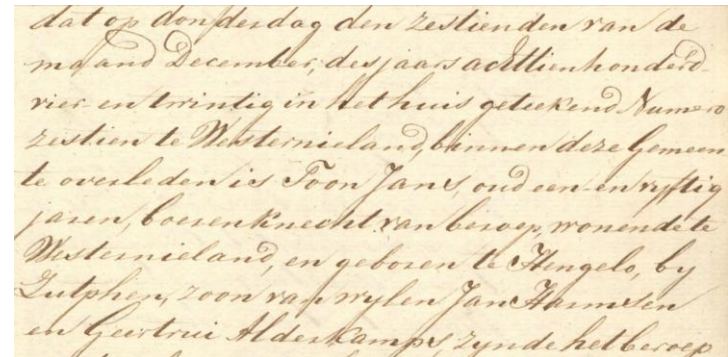 dat op donderdag den zestienden van de
maand December, des jaars achttienhonderd
vier en twintig in het huis geteekend Numero
zestien te Westernieland, binnen deze Gemeen
te overleden is Toon Jans, oud een en vyftig
jaren, boerenknecht van beroep, wonende te
Westernieland, en geboren te Hengelo, by
Zutphen, zoon van wylen Jan Harmsen
en Geertrui Alderkamps, zynde het beroep